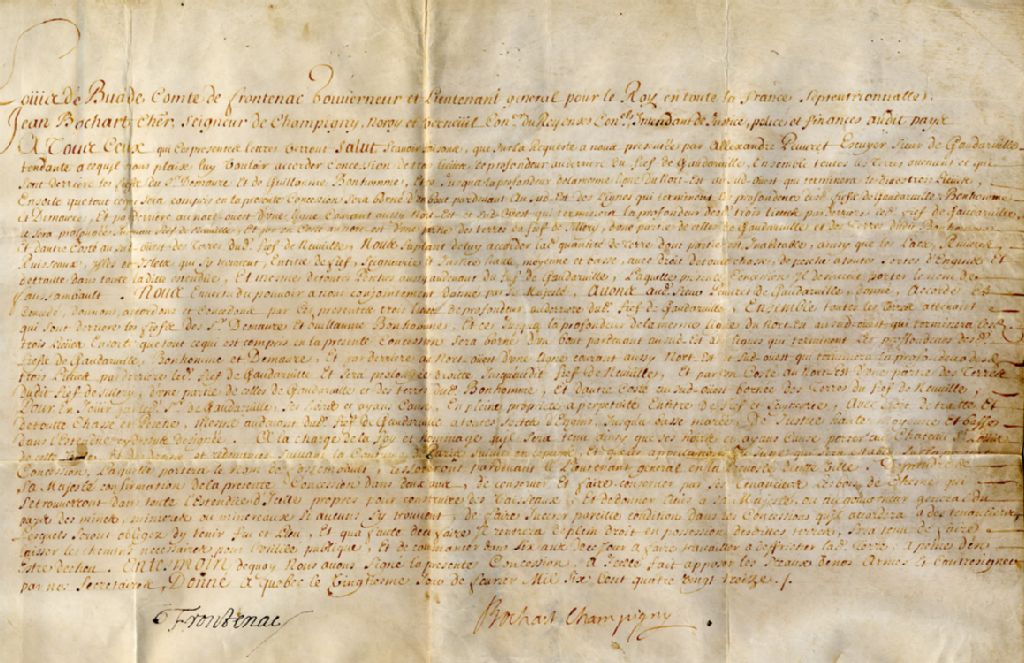 Loüis de Buade Comte de frontenac Gouverneur et Lieutenant general pour le Roy en toute la France Septentrionnalle.
Jean Bochart Cher. Seigneur de Champigny, Noroy et Verneüil Conr. du Roy en ses Conls. Intendant de Justice, police et finances audit pays
A Tous Ceux qui Ces presentes lettres verront Salut Scavoir faisons, que sur la Requeste a nous presentée par Allexandre Peuvret Escuyer Sieur de Gaudarville
tendante a ce qu'il nous plaise luy vouloir accorder concession de trois lieües de profondeur au derriere du fief de Gaudarville, Ensemble toutes les terres qui
Sont derriere les fiefs du Sr. Demaure Et de Guillaume Bonhomme, jusqu'a la profondeur de la mesme ligne du Nort-est au sud-ouest qui terminera
Ensorte que tout ce qui Sera compris en la presente Concession Sera borné d'un bout pardevant Au sud-Est des Lignes qui terminent les profondeurs desd. fiefs de Gaudarville Bonhomme
et Demaure, Et par derriere au nort-ouest d'une ligne Courant aussy Nort-Est et Sud-Ouest qui terminera la profondeur des trois lieües par derriere led. fief de Gaudarville
fief de Neuville, Et par un Costé au nord-est d'une partie des terres du fief de Sillery, d'une partie de celles de Gaudarville et des Terres dudit Bonhomme
et d'autre Costé au sud-oüest des terres dud. fief de Neuville, Nous Supliant de luy accorder lad. quantité de Terre dont partie est Inabitable, ainsy que les Lacs, Rivieres
Ruisseaux, Isles et qui Se trouvent, En titre de fief, Seigneurie et Justice haute, moyenne et basse, avec Droit de toute chasse, de pesche
et traitte dans toute lad. Estendüe, Et mesme du fief de Gaudarville, Laquelle presente Concession porter le nom de
fausembault. Nous En vertu du pouvoir a nous conjointement donné par Sa Majesté, Avons aud. Sieur Peuvret de Gaudarville, donné, Accordé et
Concedé, donnons, accordons et concedons par Ces presentes trois lieües de profondeur au derriere dud. fief de Gaudarville, Ensemble toutes les terres
qui Sont derriere les fiefs des Srs. Demaure et Guillaume Bonhomme, Et ce jusqu'a la profondeur de la mesme ligne du Nort-est au sud-oüest qui terminera lesd.
trois lieües Ensorte que tout ce qui est compris en la presente Concession Sera borné d'un bout pardevant au sud-est des lignes qui terminent les profondeurs desd.
fiefs de Gaudarville, Bonhomme et Demaure, Et par derriere au Nort-oüest d'une ligne courant aussy Nort-Est et Sud-ouest qui terminera la profondeur desd.
trois Lieües par derriere led. fief de Gaudarville Et Sera prolongée droitte jusqu'audit fief de Neuville, Et par un Costé au Nort-est d'une partie des Terres
dudit fief de Sillery, d'une partie de celles de Gaudarville et des Terres dud. Bonhomme, Et d'autre Costé au sud-ouest bornée des Terres du fief de Neuville,
Pour En Jouir par led. Sr. de Gaudarville, Ses hoirs et ayans Cause, En pleine proprieté a perpetuité En titre de fief et Seigneurie, Avec droit de traitte Et
de toutte Chasse et Pesche, mesme audevant dud. fief de Gaudarville jusqu'a basse marée, De Justice haute moyenne et basse
dans l'Estendüe cy dessus designée. A la charge de la foy et hommage qu'il Sera tenu ainsy que Ses hoirs et ayans Cause porter au Chateau St Loüis
de cette Ville Et des droits et redevances Suivant la Coutume de Paris Suivie en ce pays, Et que les appellations du Juge qui Sera Estably Sur la presente
Concession, Laquelle portera le nom de fausembault, ressortiront pardevant le Lieutenant general en la Prevosté de cette Ville. De prendre de
Sa Majesté confirmation de la presente Concession dans deux ans, de conserver et faire conserver par Ses tenanciers les bois de Chesne qui
Se trouveront dans toute l'estendüe d'icelle propres pour construire des Vaisseaux, Et de donner Advis a Sa Majesté, ou au gouverneur general du
pays des mines, minieres ou mineraux Si aucuns S'y trouvent, de faire Inserer pareille condition dans les Concessions qu'il accordera a des tenanciers,
Lesquels Seront obligez d'y tenir feu et Lieu, Et qu'a faute d'eux faire Il rentrera de plein droit en possession desdites terres, Sera tenu de faire
laisser les chemins necessaires pour l'utilité publique, Et de commancer dans Six ans de ce Jour a faire travailler a deffricher lad. Terre, a peine d'en
Estre decheu. En temoin dequoy Nous avons Signé la presente Concession, a Icelle fait apposer les Sceaux de nos Armes et contresigner
par nos Secretaires, Donné A Quebec le vingtiesme Jour de fevrier Mil Six Cent quatre vingt treize.
Frontenac
Bochart Champigny